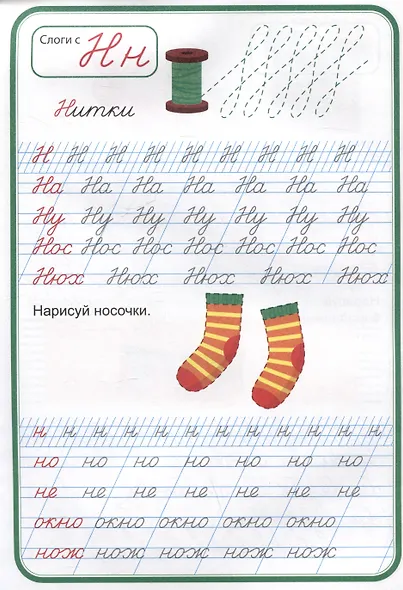 Слоги с Н н
Нитки
Н Н Н Н Н Н Н Н Н
На На На На На На На
Ну Ну Ну Ну Ну Ну Ну
Нос Нос Нос Нос Нос Нос Нос
Нюх Нюх Нюх Нюх Нюх
Нарисуй носочки.
н н н н н н н н н н н н
но но но но но но но
не не не не не не не
окно окно окно окно окно
нож нож нож нож нож